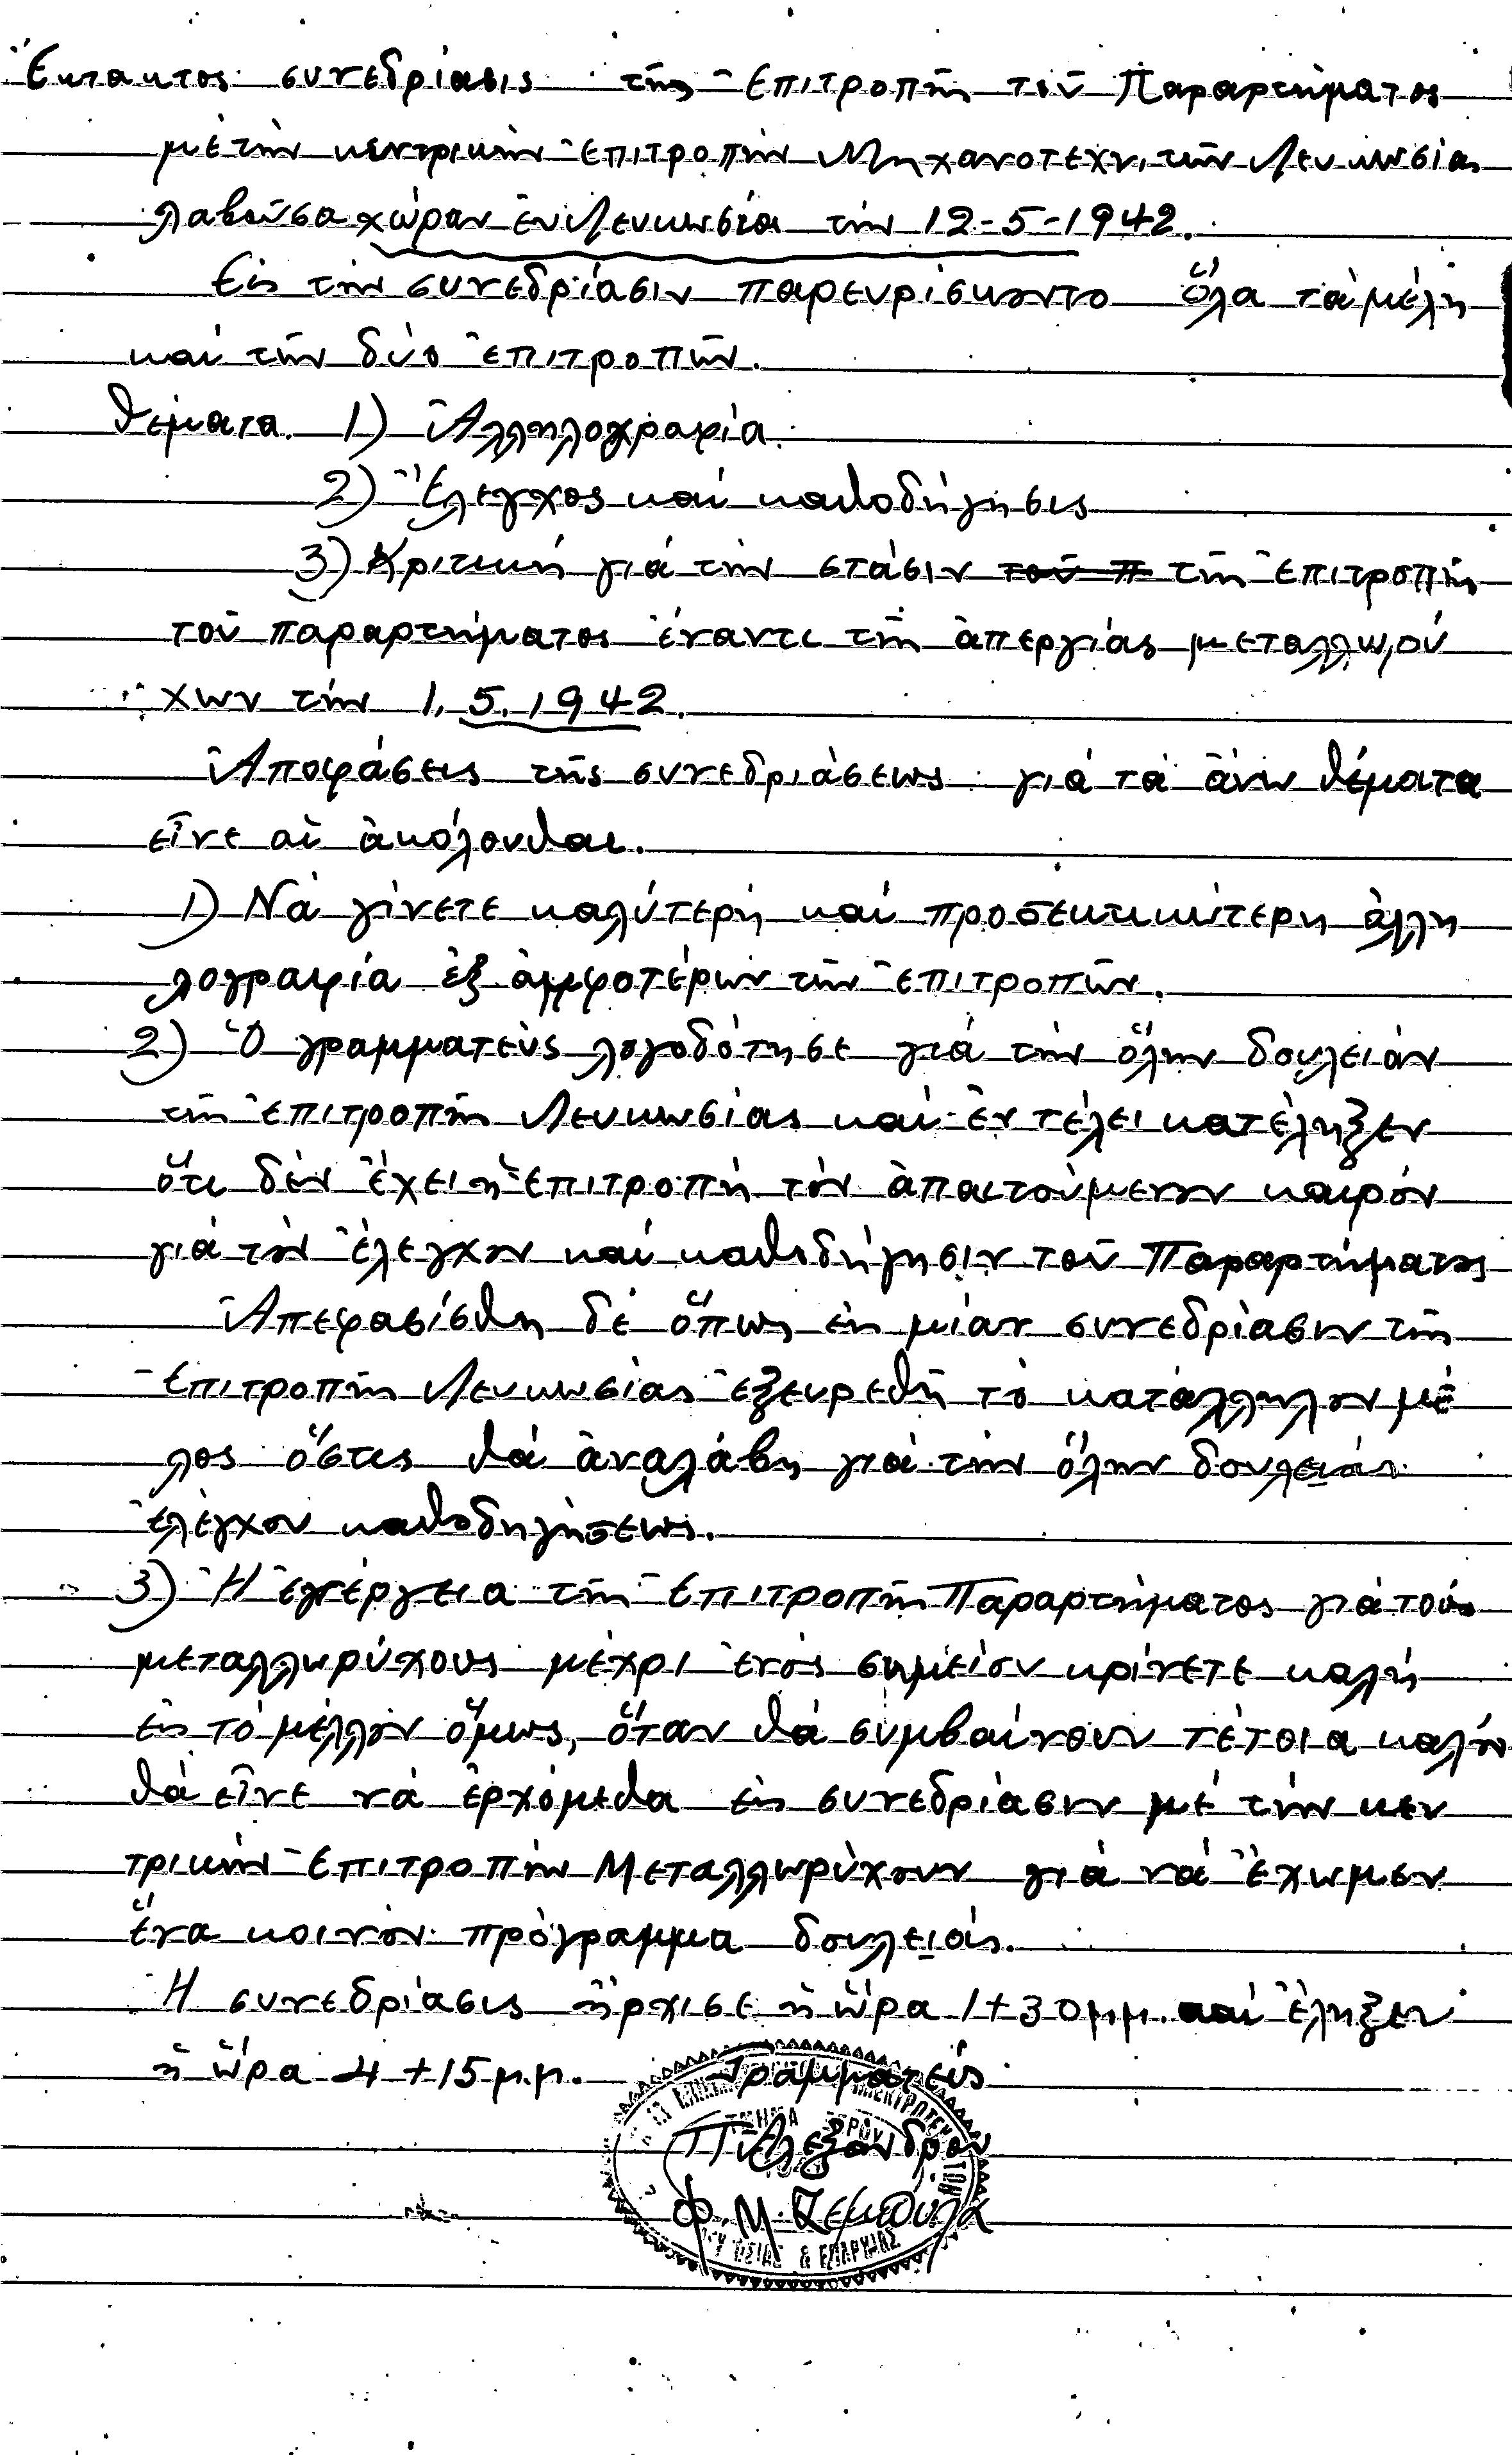 Ἔκτακτος συνεδρίασις τῆς Ἐπιτροπῆς τοῦ Παραρτήματος
μὲ τὴν κεντρικὴν ἐπιτροπὴν Μηχανοτεχν. τῶν Λευκωσίας
λαβοῦσα χώραν ἐν Λευκωσίᾳ τὴν 12-5-1942.
Εἰς τὴν συνεδρίασιν παρευρίσκοντο ὅλα τὰ μέλη
καὶ τῶν δύο ἐπιτροπῶν.
Θέματα. 1) Ἀλληλογραφία.
2) Ἔλεγχος καὶ καθοδήγησις
3) Κριτικὴ γιὰ τὴν στάσιν τοῦ Π τῆς ἐπιτροπῆς
τοῦ παραρτήματος ἔναντι τῆς ἀπεργίας μεταλλωρύ
χων τὴν 1.5.1942.
Ἀποφάσεις τῆς συνεδριάσεως γιὰ τὰ ἄνω θέματα
εἶνε αἱ ἀκόλουθαι.
1) Νὰ γίνετε καλύτερη καὶ προσεκτικώτερη ἀλλη
λογραφία ἐξ ἀμφοτέρων τῶν ἐπιτροπῶν.
2) Ὁ γραμματεὺς λογοδότησε γιὰ τὴν ὅλην δουλειὰν
τῆς ἐπιτροπῆς Λευκωσίας καὶ ἐν τέλει κατέληξεν
ὅτι δὲν ἔχει ἡ ἐπιτροπὴ τὸν ἀπαιτούμενον καιρὸν
γιὰ τὸν ἔλεγχον καὶ καθοδήγησιν τοῦ Παραρτήματος
Ἀπεφασίσθη δὲ ὅπως εἰς μίαν συνεδρίασιν τῆς
Ἐπιτροπῆς Λευκωσίας ἐξευρεθῆ τὸ κατάλληλον μέ
λος ὅστις θὰ ἀναλάβη γιὰ τὴν ὅλην δουλειὰν
ἐλέγχου καθοδηγήσεως.
3) Ἡ ἐνέργεια τῆς Ἐπιτροπῆς Παραρτήματος γιὰ τοὺς
μεταλλωρύχους μέχρι ἑνὸς σημείου κρίνετε καλὴ
εἰς τὸ μέλλον ὅμως, ὅταν θὰ συμβαίνουν τέτοια καλὸν
θὰ εἶνε νὰ ἐρχόμεθα εἰς συνεδρίασιν μὲ τὴν κεν
τρικὴν Ἐπιτροπὴν Μεταλλωρύχων γιὰ νὰ ἔχωμεν
ἕνα κοινὸν πρόγραμμα δουλειάς.
Ἡ συνεδρίασις ἤρχισε ἡ ὥρα 1+30 μ.μ. καὶ ἔληξεν
ἡ ὥρα 4+15 μ.μ. Γραμματεύς
Π. Ἀλεξάνδρου
Φ. Μ.
& ΕΠΑΡΧΙΑΣ